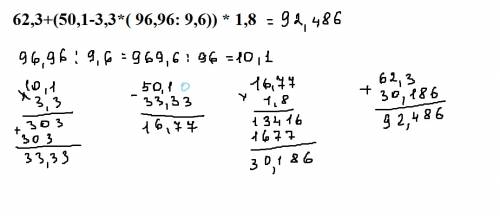 62,3+(50,1-3,3*( 96,96: 9,6)) * 1,8 = 92,486
96,96 : 9,6 = 969,6 : 96 = 10,1
× 10,1
3,3
+ 303
303
33,33
- 50,10
33,33
16,77
× 16,77
1,8
13416
1677
30,186
+ 62,3
30,186
92,486